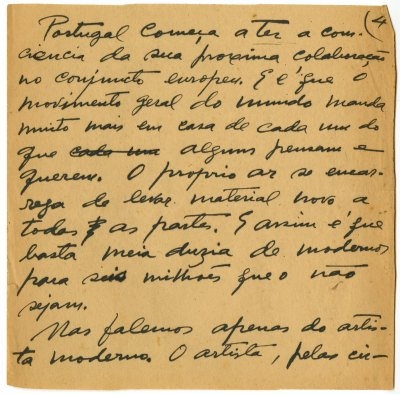 (4
Portugal começa a ter a cons-
ciencia da sua proxima colaboração
no conjunto europeu. E é que o
movimento geral do mundo manda
muito mais em casa de cada um do
que cada um alguns pensam e
querem. O proprio ar se encar-
rega de levar material novo a
todas as partes. E assim é que
basta meia duzia de modernos
para seis milhões que o não
sejam.
Mas falemos apenas do artis-
ta moderno. O artista, pelas cir-